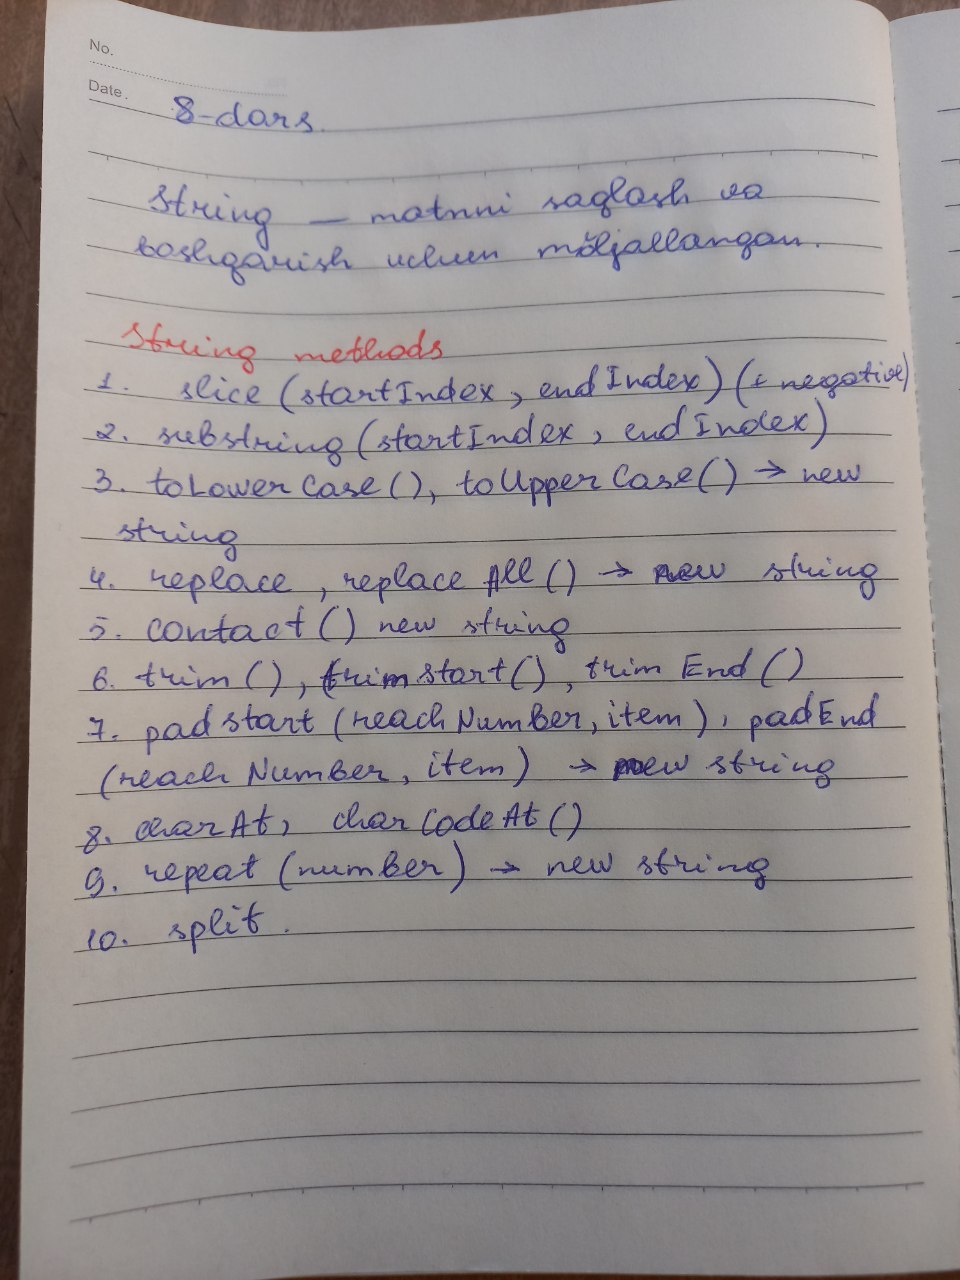 No.
Date.
8-dars.
String – matnni saqlash va
boshqarish uchun mo'ljallangan.
String methods
1. slice (startIndex, endIndex) (± negative)
2. substring (startIndex, endIndex)
3. toLowerCase(), toUpperCase() → new
string
4. replace, replaceAll() → new string
5. contact() new string
6. trim(), trimstart(), trimEnd()
7. padstart (reachNumber, item), padEnd
(reach Number, item) → new string
8. charAt, charCodeAt()
9. repeat (number) → new string
10. split.